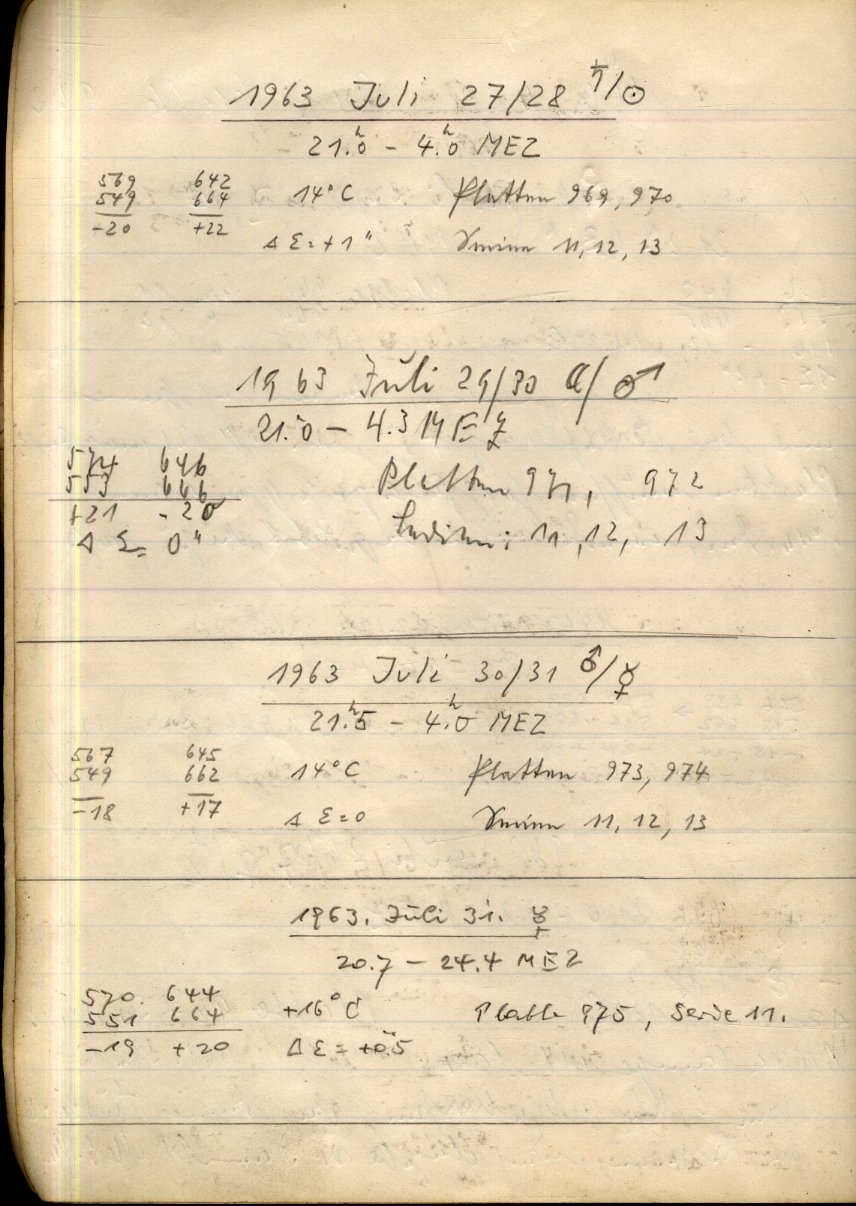 1963 Juli 27/28 ♄/☉
21.ʰ0 – 4.ʰ0 MEZ
569 642 14°C Platten 969, 970
549 664
+20 +22 Δ Σ = +1" Serien 11, 12, 13
1963 Juli 29/30 ☾/♂
21.0 – 4.3 MEZ
574 646 Platten 971, 972
553 666
+21 -20 Serien: 11, 12, 13
Δ Σ = 0"
1963 Juli 30/31 ♂/☿
21.ʰ5 – 4.ʰ0 MEZ
567 645 14°C Platten 973, 974
549 662
-18 +17 Δ Σ = 0 Serien 11, 12, 13
1963. Juli 31. ☿
20.7 – 24.4 MEZ
570 644 +16°C Platte 975, Serie 11.
551 664
-19 +20 Δ Σ = +0.5